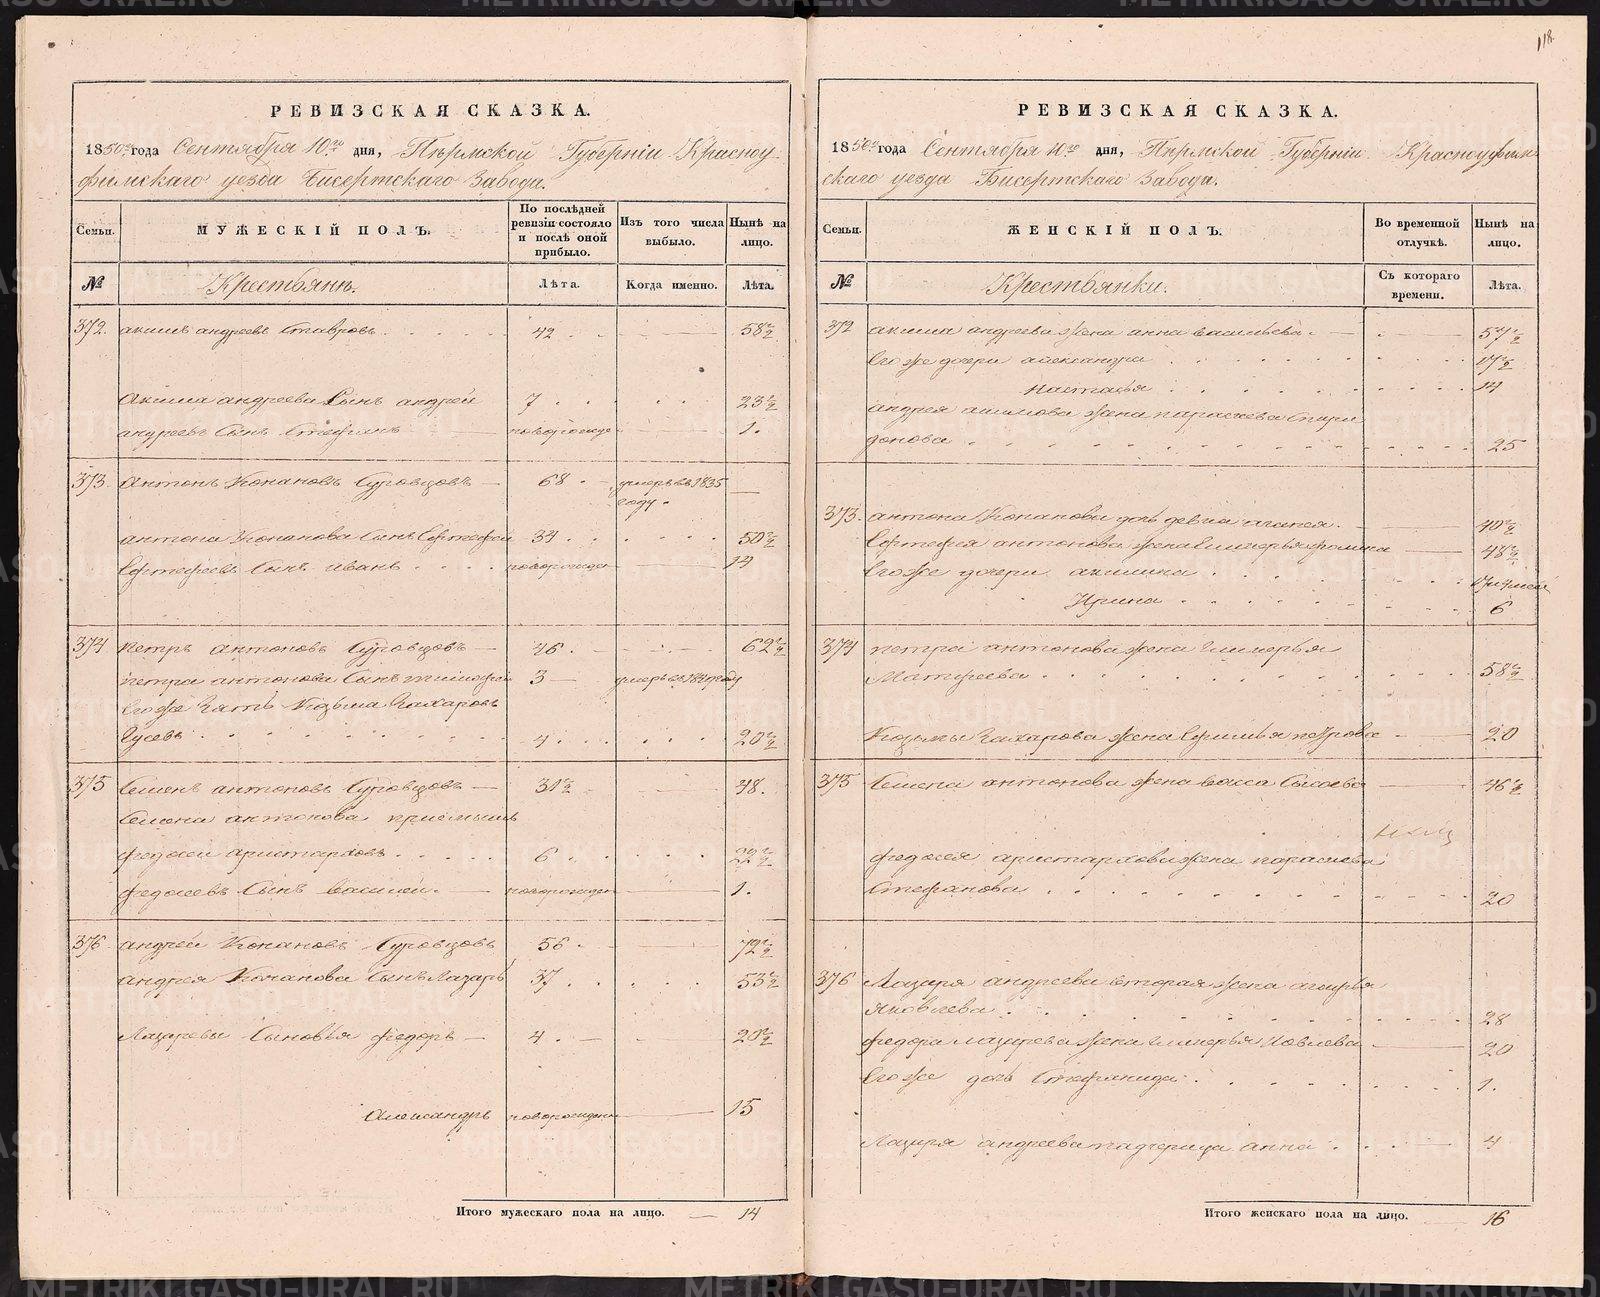 118
РЕВИЗСКАЯ СКАЗКА.
1850го года Сентября 10го дня, Пермской Губерніи Красноу-
фимскаго уезда Бисертскаго Завода.
Семьи.
МУЖЕСКІЙ ПОЛЪ.
По послѣдней ревизіи состояло и послѣ оной прибыло.
Изъ того числа выбыло.
Нынѣ на лицо.
№
Крестьяне.
Лѣта.
Когда именно.
Лѣта.
372. акимъ андреевъ Ставровъ 42 58½
Акима андреева Сынъ андрей 7 23½
андреевъ Сынъ Стефанъ новорожде 1.
373. Антонъ Конановъ Суровцовъ 68 умеръ въ 1835
году.
антона Конанова Сынъ 34 50½
Сынъ иванъ новорожден 14
374 петръ антоновъ Суровцовъ 46 62½
петра антонова Сынъ тимофей 3 умеръ въ году
Его же Зять Козьма Захаровъ
Гусевъ 4 20½
375 Семенъ антоновъ Суровцовъ 31½ 48.
Семена антонова приемышъ
федосей аристарховъ 6 22½
федосеевъ Сынъ василей новорожден 1.
376 андрей Конановъ Суровцовъ 56 72½
андрея Конанова Сынъ Лазарь 37 53½
Лазаревы Сыновья федоръ 4 20½
Александръ новорожден 15
Итого мужескаго пола на лицо. 14
РЕВИЗСКАЯ СКАЗКА.
1850го года Сентября 10го дня, Пермской Губерніи Красноуфим-
скаго уезда Бисертскаго Завода.
Семьи.
ЖЕНСКІЙ ПОЛЪ.
Во временной отлучкѣ.
Нынѣ на лицо.
№
Крестьянки.
Съ котораго времени.
Лѣта.
372 акима андреева жена анна васильева 57½
Его же дочери александра 17½
настасья 14
андрея акимова жена параскева Спири
донова 25
373. антона Конанова дочь девка 40½
антонова жена фомина 48½
Его же дочери акилина
Ирина 6
374 петра антонова жена гликерья
Матфеева 58½
Козьмы Захарова жена петрова 20
375 Семена антонова жена васса Сысоева 46½
федосея аристархова жена параскева
Стефанова 20
376 Лазаря андреева вторая жена
яковлева 28
федора лазарева жена гликерья 20
Его же дочь Стефанида 1.
Лазаря андреева падчерица анна 4
Итого женскаго пола на лицо. 16
METRIKI.GASO-URAL.RU